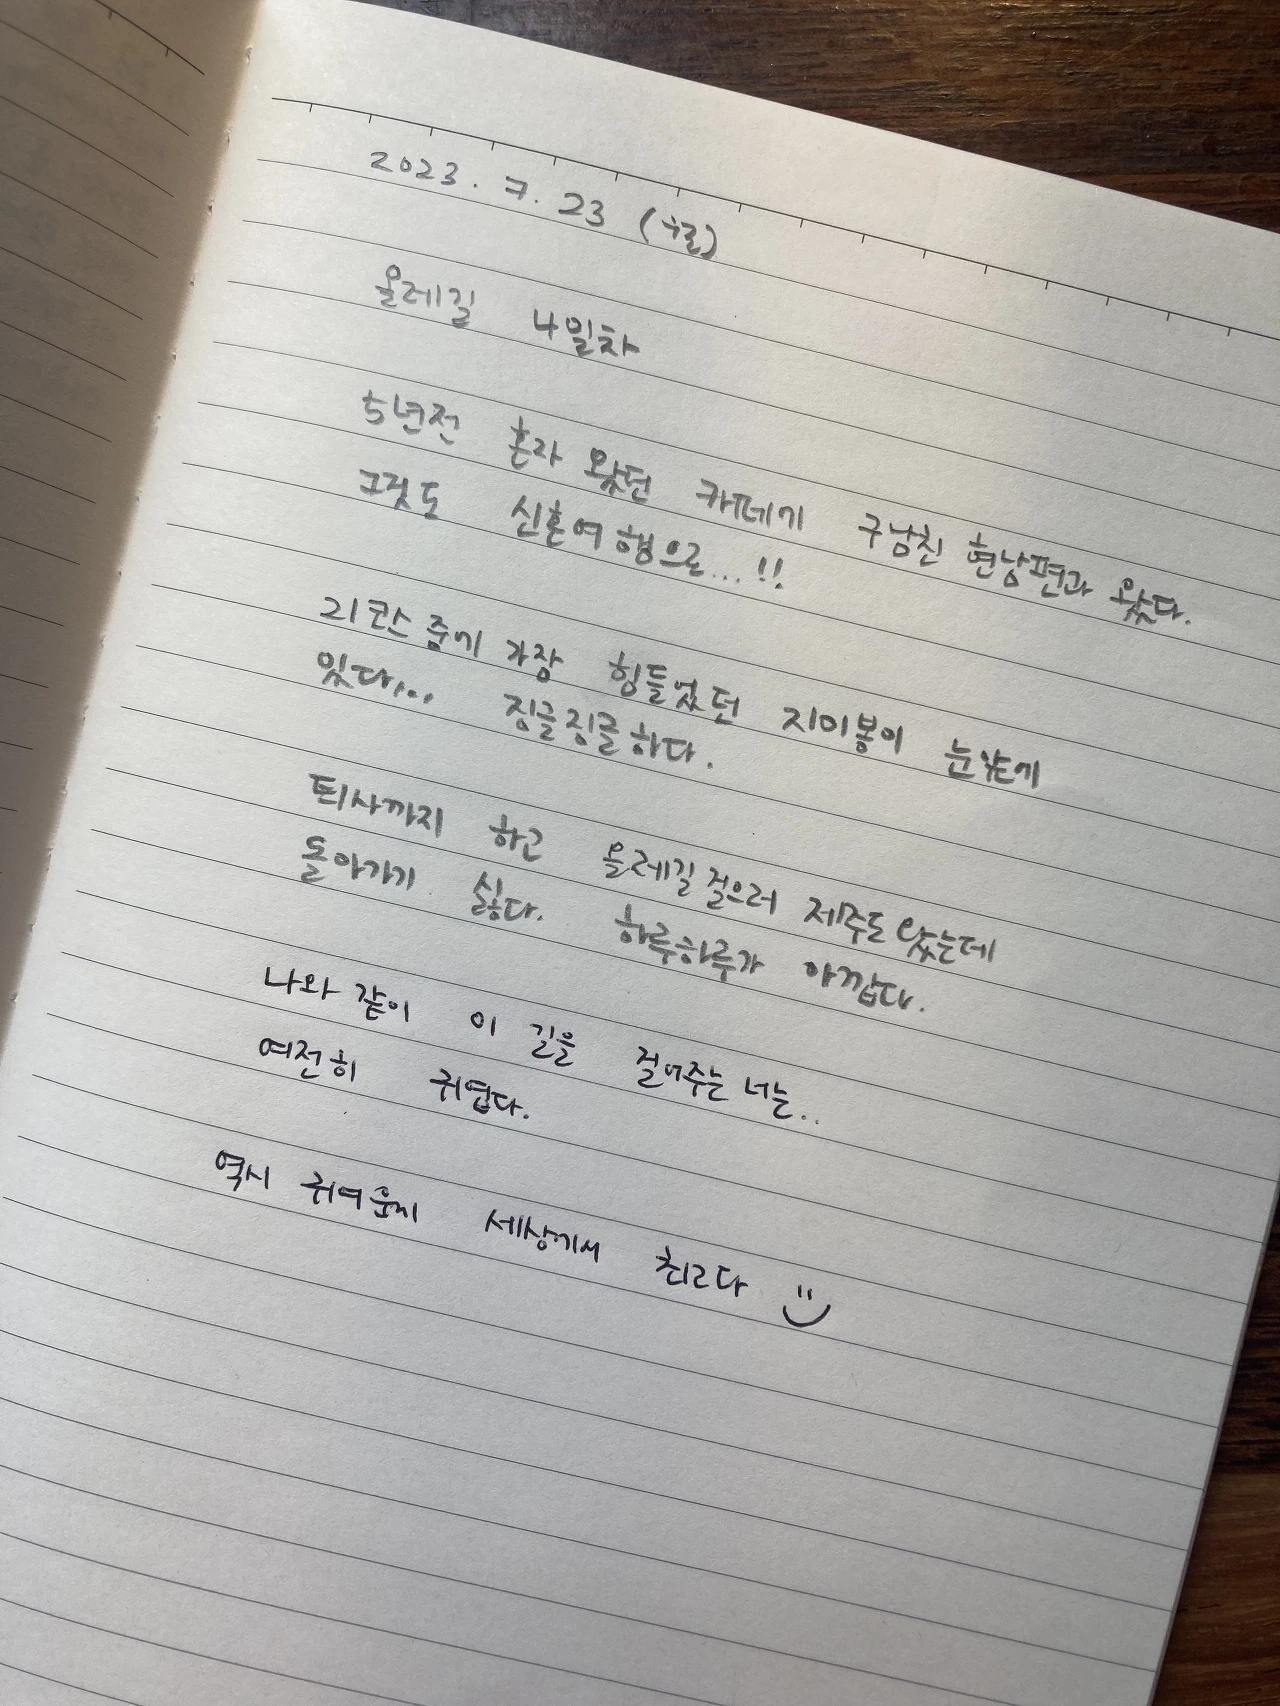 2023. 7. 23 (일)
올레길 4일차
5년전 혼자 왔던 카페에 구남친 현남편과 왔다.
그것도 신혼여행으로...!!
21코스 중에 가장 힘들었던 지미봉이 눈앞에
있다... 징글징글하다.
퇴사까지 하고 올레길 걸으러 제주도 왔는데
돌아가기 싫다. 하루하루가 아깝다.
나와 같이 이 길을 걸어주는 너는..
여전히 귀엽다.
역시 귀여운게 세상에서 최고다